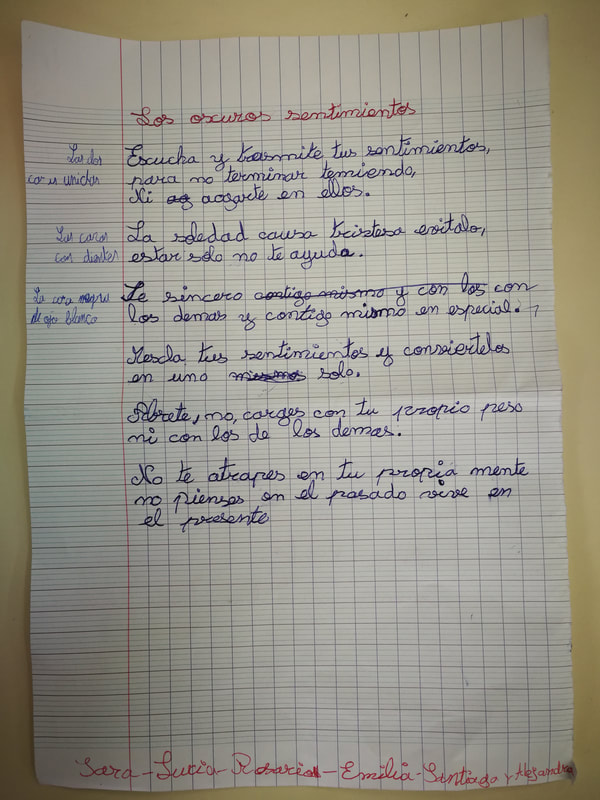 Los oscuros sentimientos
Las dos
caras unidas
Escucha y trasmite tus sentimientos,
para no terminar temiendo,
Ni ag aogarte en ellos.
Las caras
con dientes
La soledad causa tristesa evitalo,
estar solo no te ayuda.
La cara negra
de ojo blanco
Se sincero contigo mismo y con los con
los demas y contigo mismo en especial.
Mescla tus sentimientos y conviertelos
en uno solo.
Abrete, no, carges con tu propio peso
ni con los de los demas.
No te atrapes en tu propia mente
no pienses en el pasado vive en
el presente
Sara - Lucia - Rosario - Emilia - Santiago y Alejandra